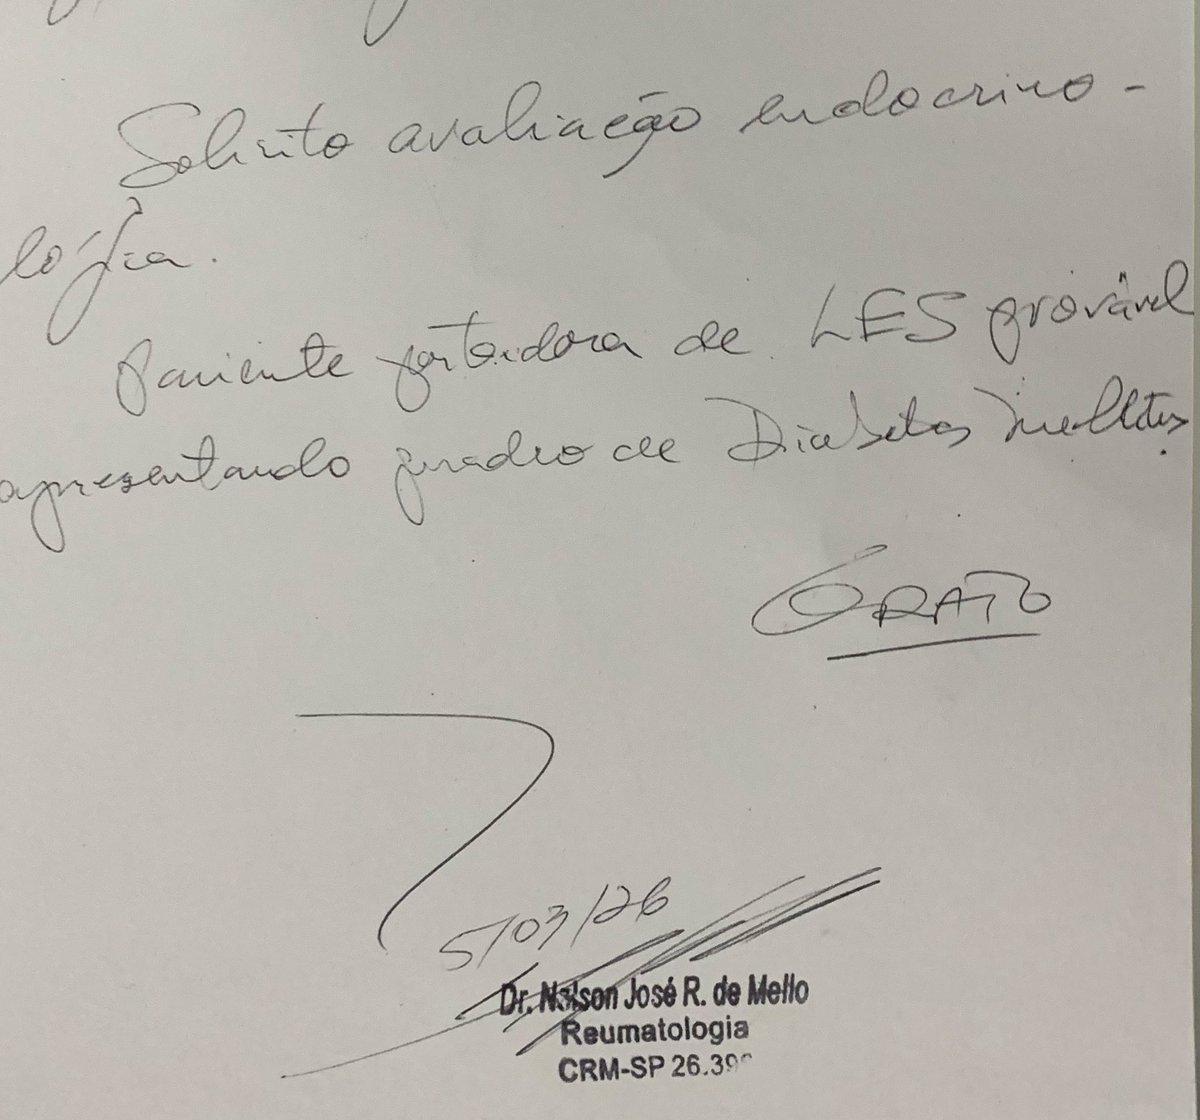 Solicito avaliação endocrino-
lógica.
Paciente portadora de LES provável
apresentando quadro de Diabetes Mellitus.
GRATO
5/03/26
Dr. Nelson José R. de Mello
Reumatologia
CRM-SP 26.39